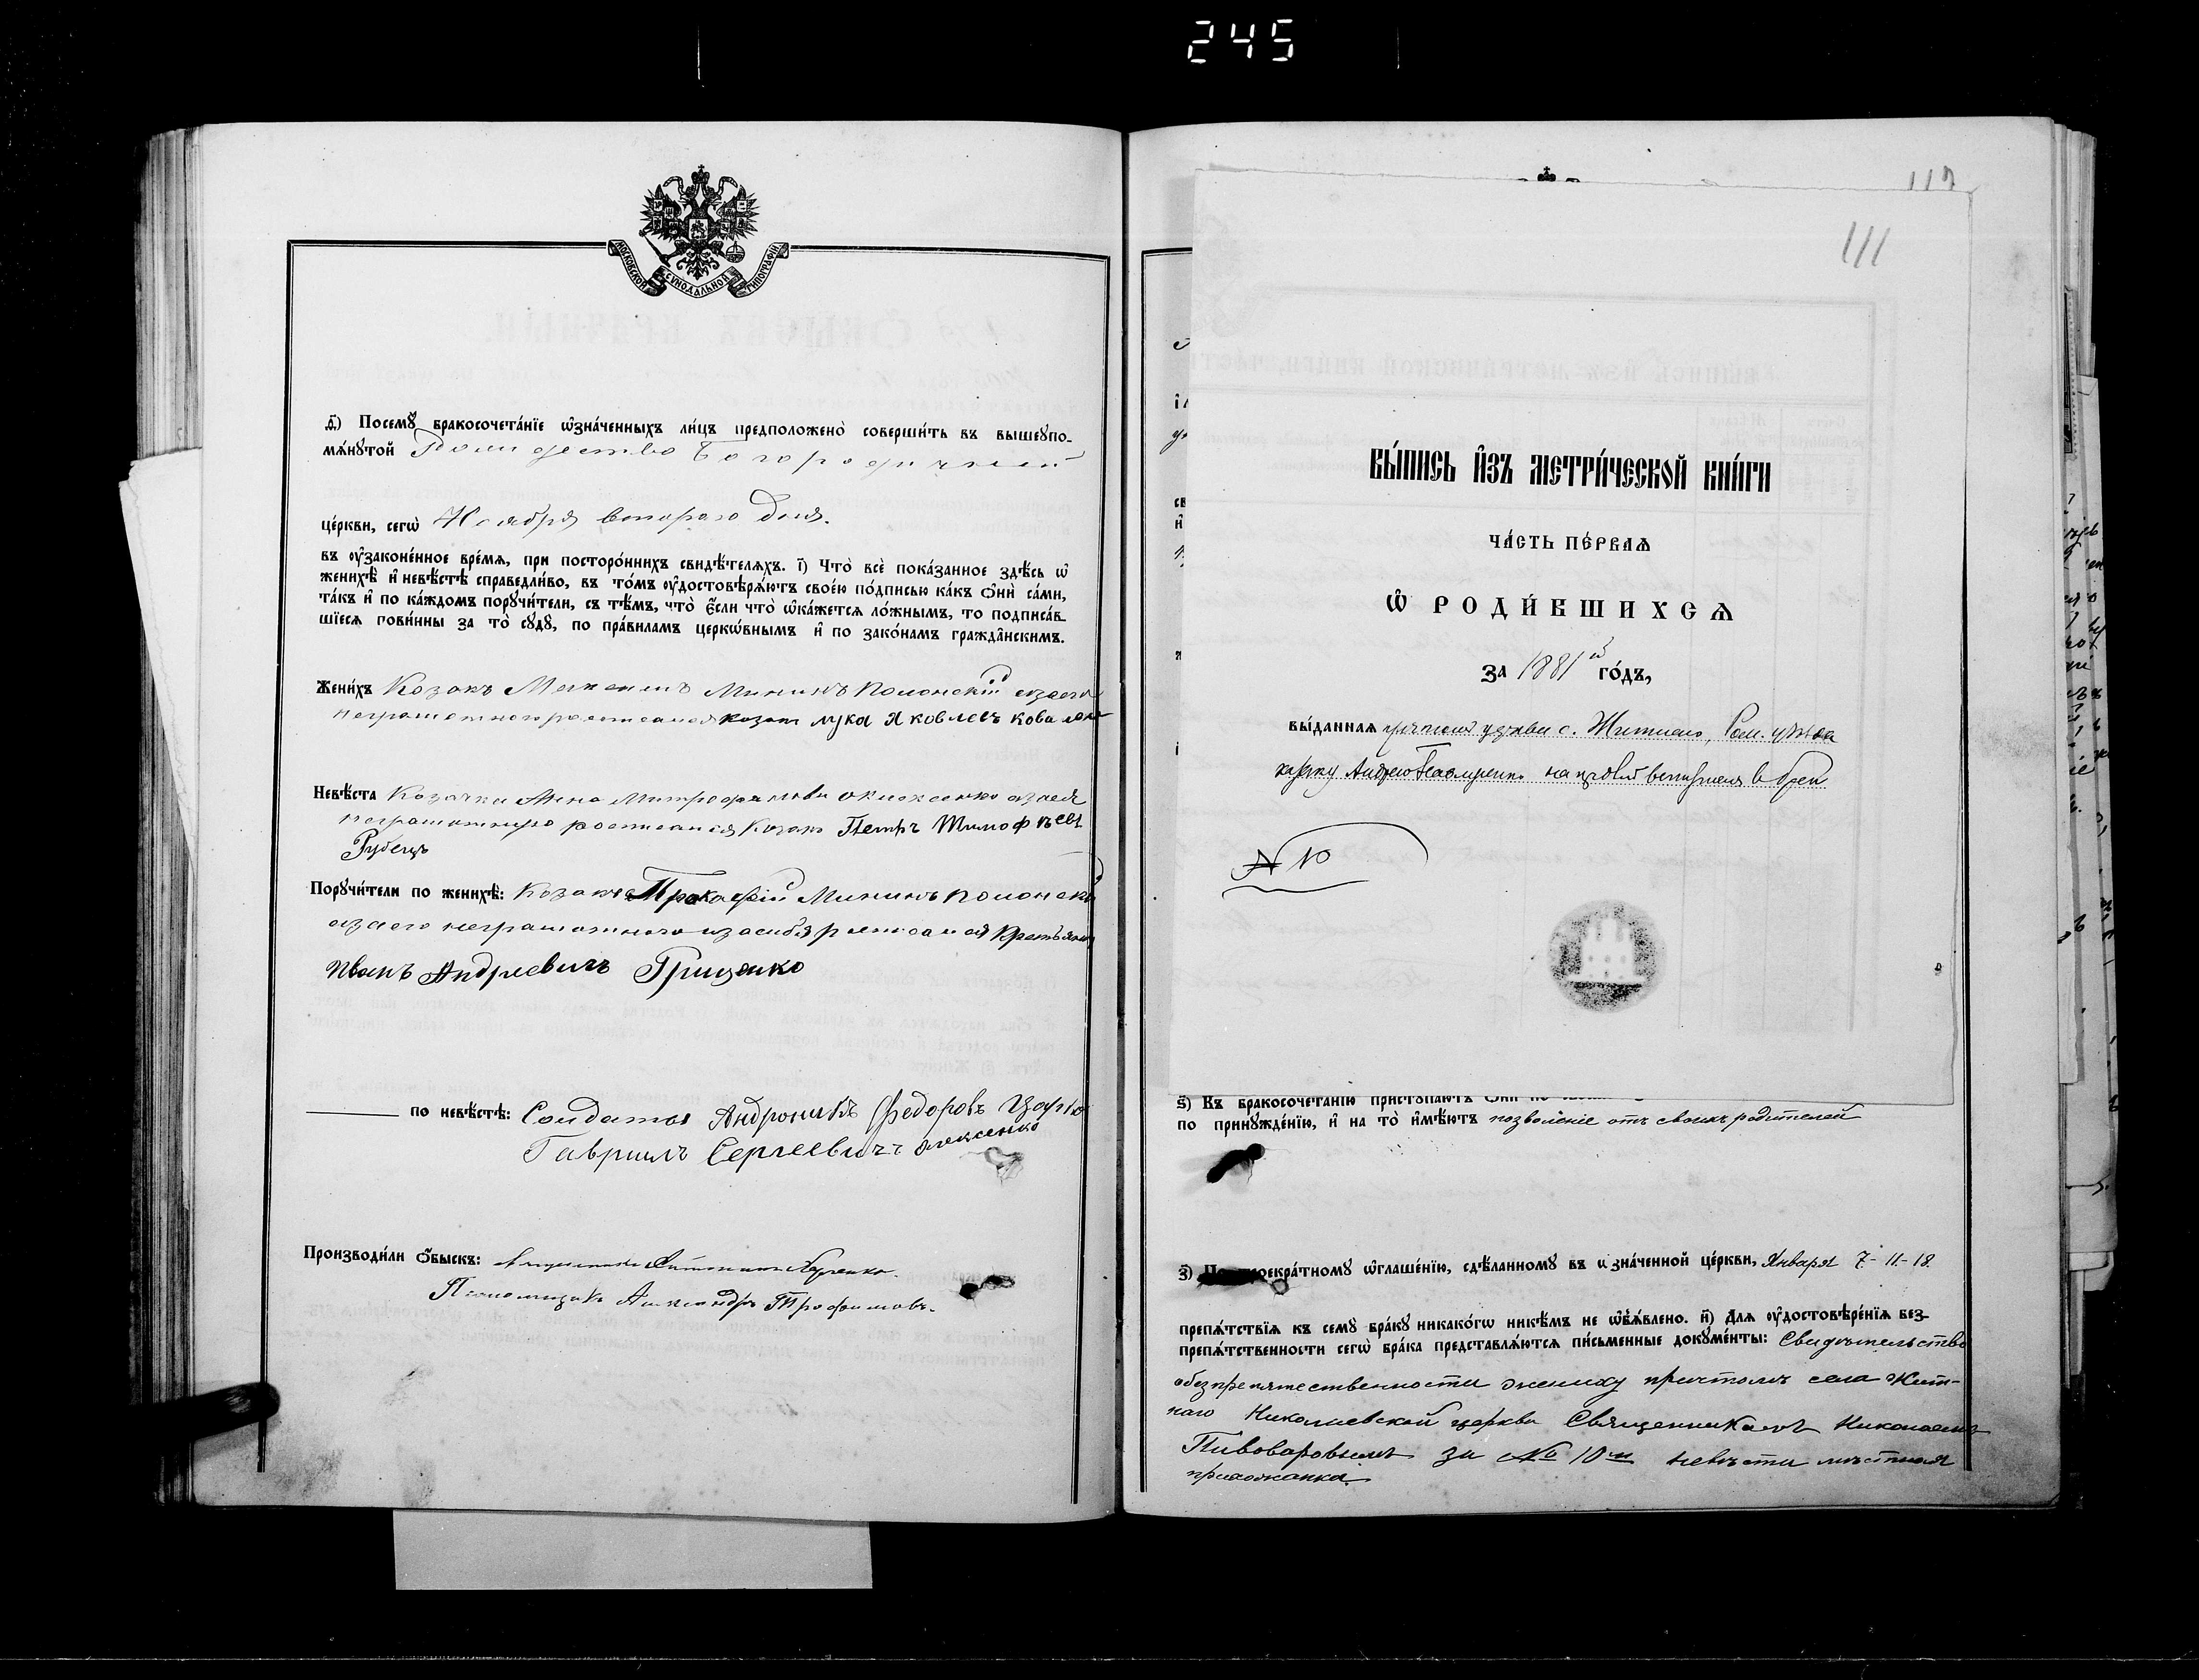 245
МОСКОВСКОЙ СѴНОДАЛЬНОЙ ТИПОГРАФІИ
д҃) Посемꙋ̀ бракосочета́нїе ѡ҆зна́ченныхъ ли́цъ предположено̀ соверши́ть въ вышеꙋпо-
мѧ́нꙋтой Рождество Богородичной
це́ркви, сегѡ̀ Ноября втораго дня.
въ ᲂу҆законе́нное вре́мѧ, при посторо́ннихъ свидѣ́телѧхъ. і҃) Что̀ всѐ пока́занное здѣ́сь ѡ҆
женихѣ̀ и҆ невѣ́стѣ справедли́во, въ то́мъ ᲂу҆достовѣрѧ́ютъ свое́ю по́дписью ка́къ ѻ҆нѝ са́ми,
та́къ и҆ по ка́ждомъ порꙋчи́тели, съ тѣ́мъ, что̀ є҆́сли что̀ ѡ҆ка́жетсѧ ло́жнымъ, то подписа́в-
шїесѧ пови́нны за то̀ сꙋдꙋ̀, по пра́виламъ церко́внымъ и҆ по зако́намъ гражда́нскимъ.
Жени́хъ Козакъ Мининъ Полонскій азаего
неграмотнаго росписался козак лука Яковлевъ ковалено
Невѣ́ста Козачка Анна Митрофанова азаея
неграмотную росписался Козакъ Петръ Тимофѣевъ
Рубецъ
Порꙋчи́тели по женихѣ̀: Козакъ Прокофій Мининъ Полонскій
азаего неграмотнаго изасебя росписался Крестьянин
иванъ Андреевичъ Грищенко
по невѣ́стѣ: Солдатъ Андроникъ Федоровъ
Гавриилъ Сергеевичъ Алексенко
Производи́ли ѻ҆́быскъ: Священникъ
Псаломщикъ Александръ Трофимовъ.
117
111
ВЫ́ПИСЬ И҆ЗЪ МЕТРИ́ЧЕСКОЙ КНИ́ГИ
ЧА́СТЬ ПЕ́РВАѦ
Ѡ҆ РОДИ́ВШИХСѦ
ЗА 1881й ГО́ДЪ,
ВЫ́ДАННАѦ причтомъ церкви с. Житнаго, Ром. уѣзда
казаку Андрею на предметъ вступленія в брак
№ 10
ѕ҃) Къ бракосочета́нїю пристꙋпа́ютъ ѻ҆нѝ по
по принꙋжде́нїю, и҆ на то̀ и҆мѣ́ютъ позволеніе отъ своихъ родителей
з҃) По троекра́тномꙋ ѡ҆глаше́нїю, сдѣ́ланномꙋ въ ѡ҆зна́ченной це́ркви, Января 7-11-18
препѧ́тствїѧ къ семꙋ̀ бра́кꙋ никако́гѡ никѣ́мъ не ѡ҆б̾ѧ́влено. и҃) Для ᲂу҆достовѣре́нїѧ без-
препѧ́тственности сегѡ̀ бра́ка представлѧ́ютсѧ пи́сьменные докꙋме́нты: Свидѣтельство
о безпрепятственности жениху причтомъ села Жит-
наго Николаевской церкви Священникомъ Николаемъ
Пивоваровымъ за № 10м невѣста мѣстная
прихожанка.